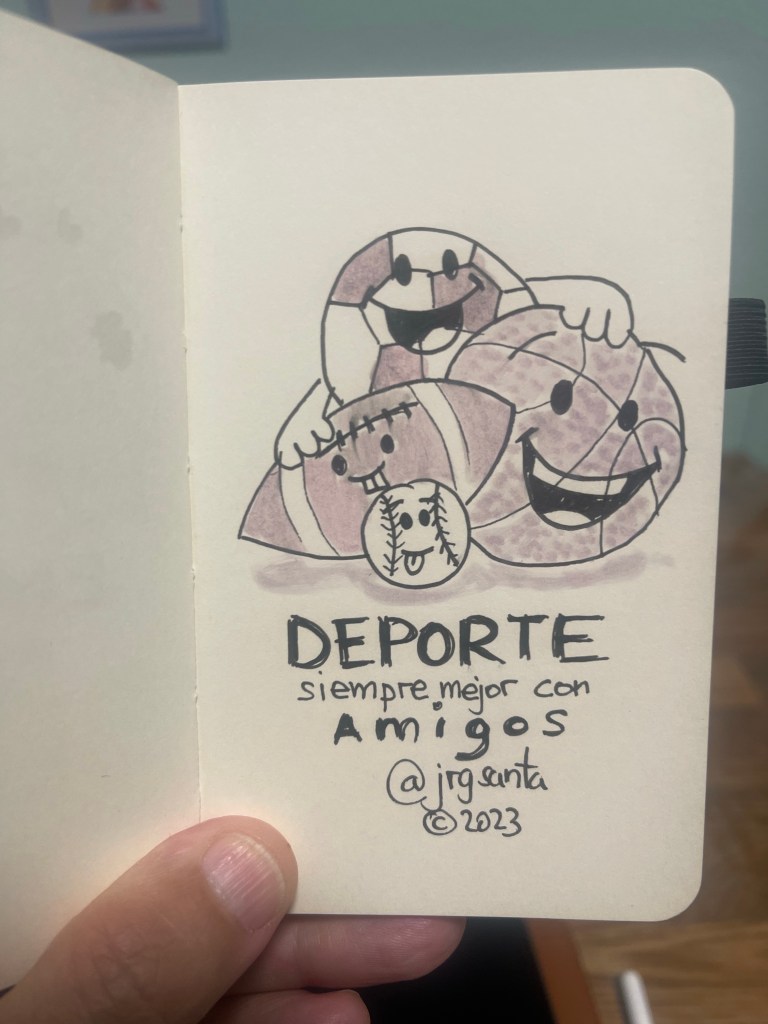 DEPORTE
siempre mejor con
Amigos
@jrgsanta
© 2023